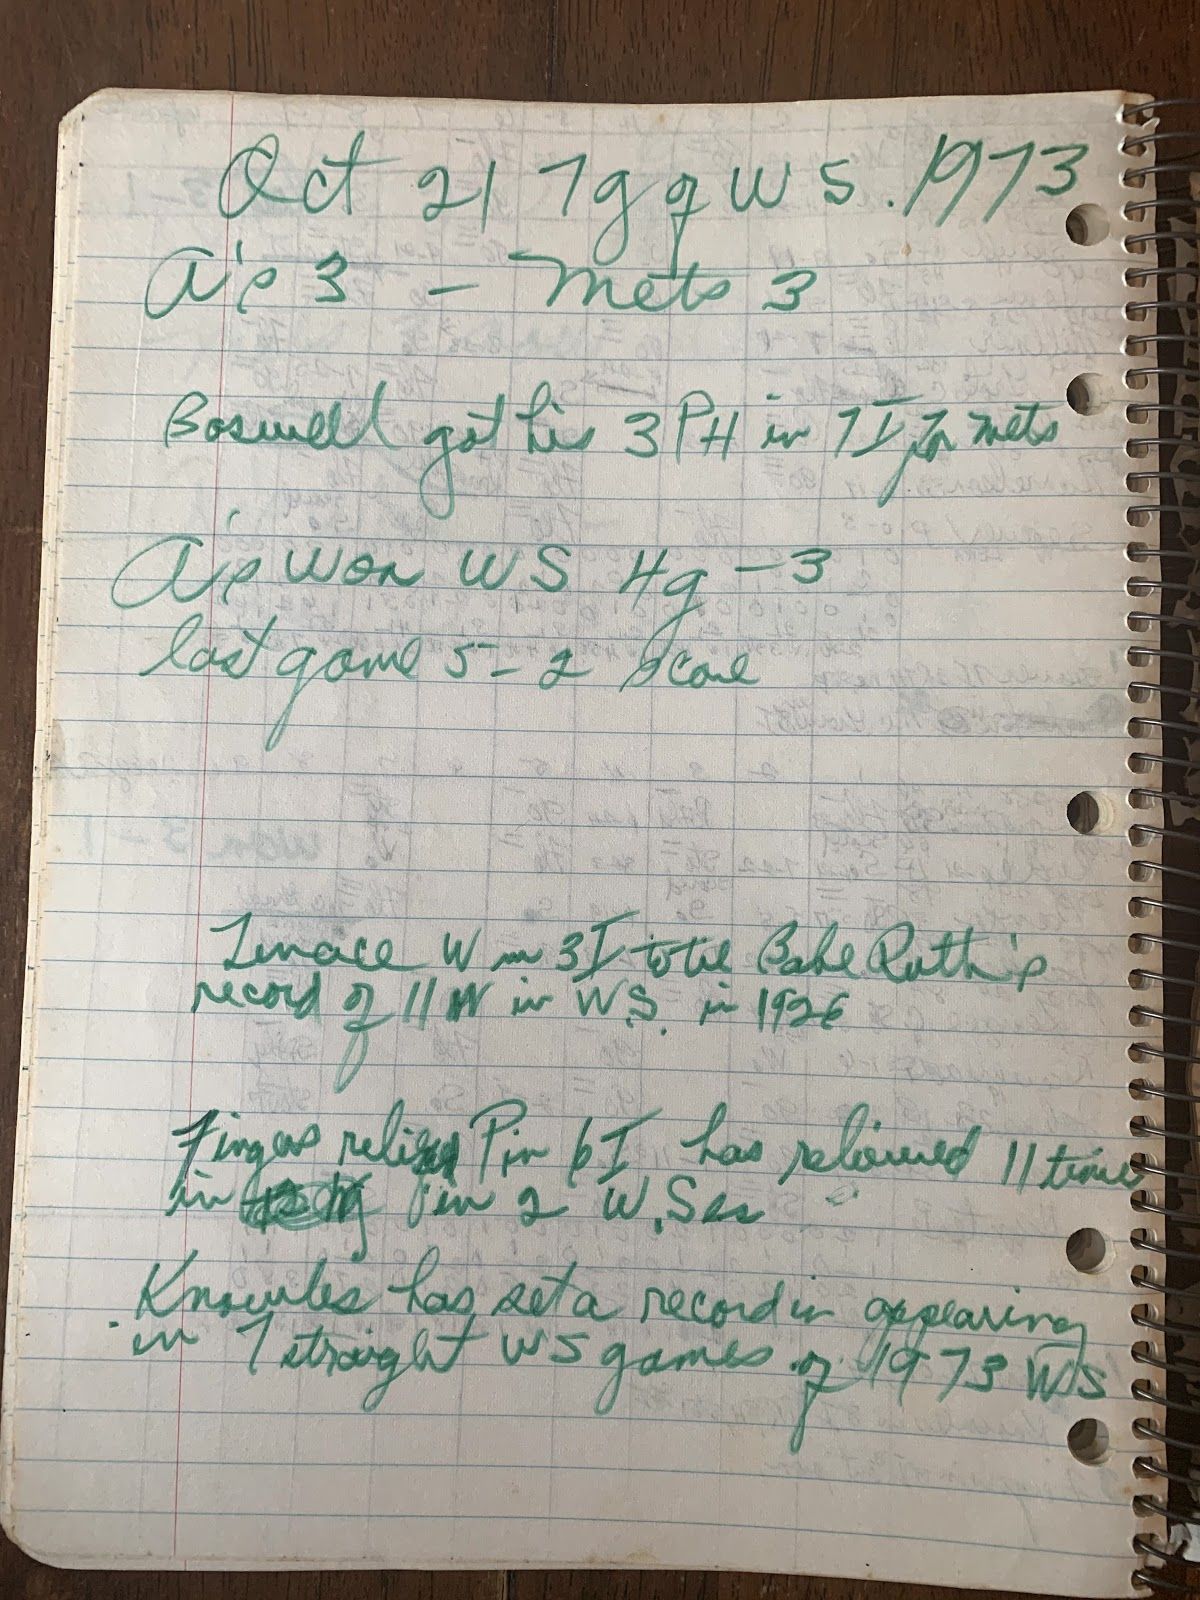 Oct 21 7g of W S. 1973
A's 3 - Mets 3
Boswell got his 3 PH in 7 I for Mets
A's Won WS 4g - 3
last game 5 - 2 score
Tenace W in 3I to tie Babe Ruth's
record of 11 W in W.S. in 1926
Fingers P in 6 I has relieved 11 time
in in 2 W.Ses
Knowles has set a record in appearing
in 7 straight WS games of 1973 WS